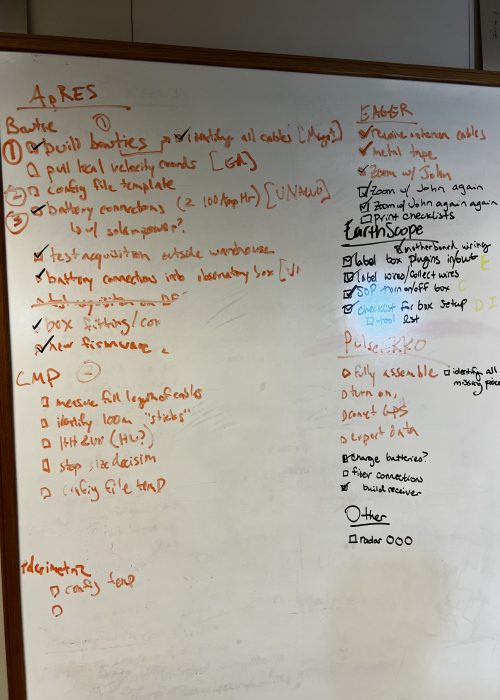 ApRES
Bowtie
① build bowties → identify all cables
pull local velocity records
② config file template
③ battery connections (2 100 Amp Hr)
↳ w/ solar power?
test acquisition outside warehouse
battery connections into observatory box
box fitting/
new firmware
CMP ②
measure full length of cables
identify 100m "sticks"
(HV?)
step size decision
config file temp
config temp
EAGER
remove antenna cables
metal tape
Zoom w/ John
Zoom w/ John again
Zoom w/ John again again
print checklists
EarthScope
motherboard wiring
label box plugins in/out E
label wires/collect wires
SOP turn on/off box C
checklist for box setup D I
tool list
PulseEKKO
fully assemble identify all missing
turn on,
GPS
export data
charge batteries?
fiber connections
build receiver
Other
radar OOO